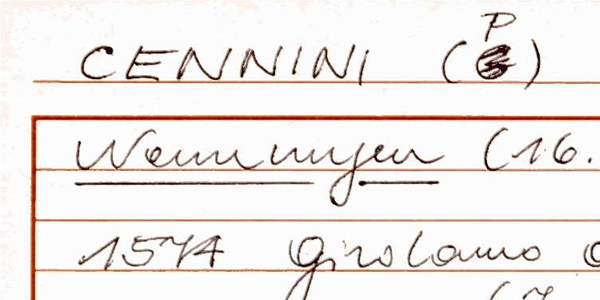 CENNINI (P)
Nennungen (16.
1574 Girolamo